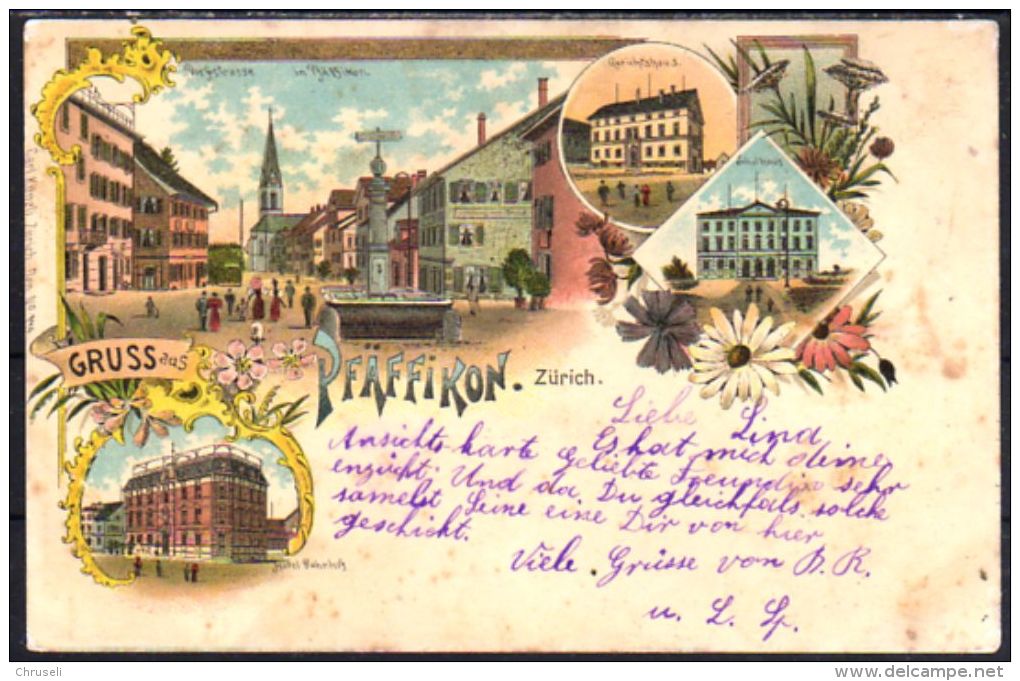 Dorfstrasse in Pfäffikon.
Gerichtshaus.
Schulhaus
GRUSS aus
PFÄFFIKON. Zürich.
Hotel Bahnhof
Liebe Lind
Es hat mich deine
Ansichtskarte geliebte Freundin sehr
Und da Du gleichfalls solche
samelst eine Dir von hier
geschickt.
Viele Grüsse von B. K.
u. L.
Chruseli
www.delcampe.net